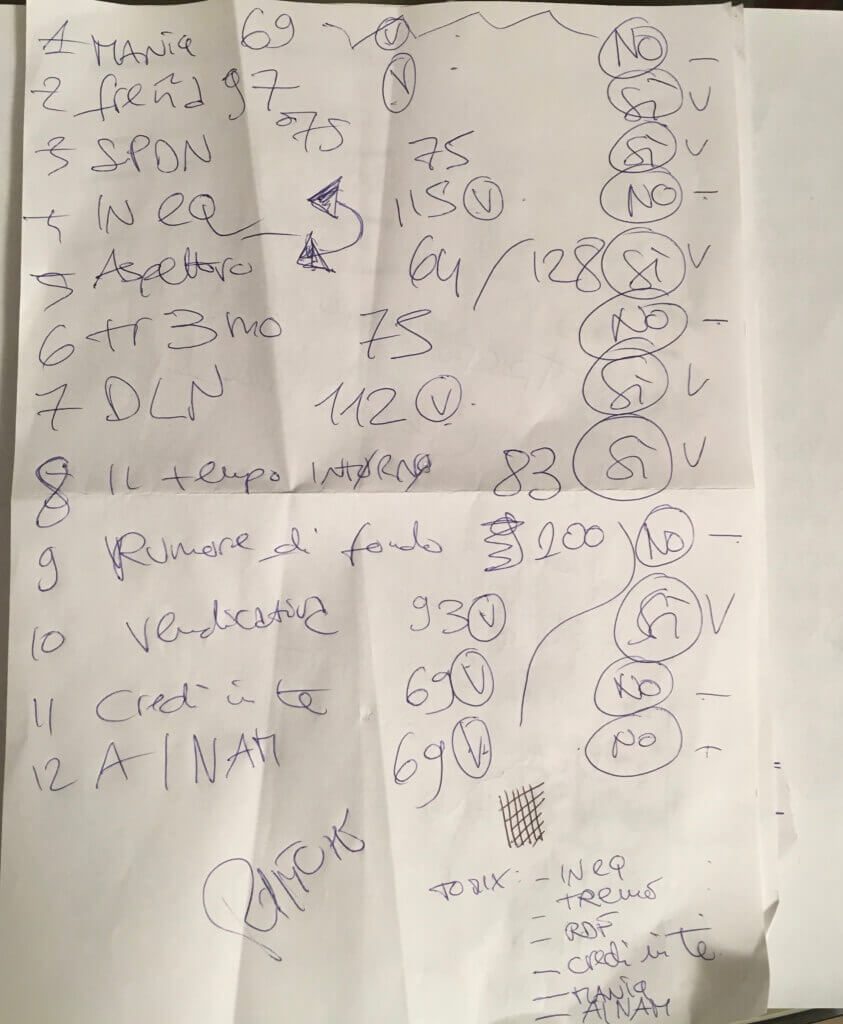 1 MANIA 69 V NO -
2 freña 97 V SI V
075
3 SPDN 75 SI V
4 IN EQ 115 V NO -
5 Aspettero 64/128 SI V
6 tr3mo 75 NO -
7 DLN 112 V SI V
8 IL tempo INTORNO 83 SI V
9 Rumore di fondo 100 NO -
10 Vendicativa 93 V SI V
11 Credi in te 69 V NO -
12 A/NAM 69 V NO -
TO RIX: - IN EQ
- tremo
- RDF
- Credi in te
- MANIA
- A/NAM